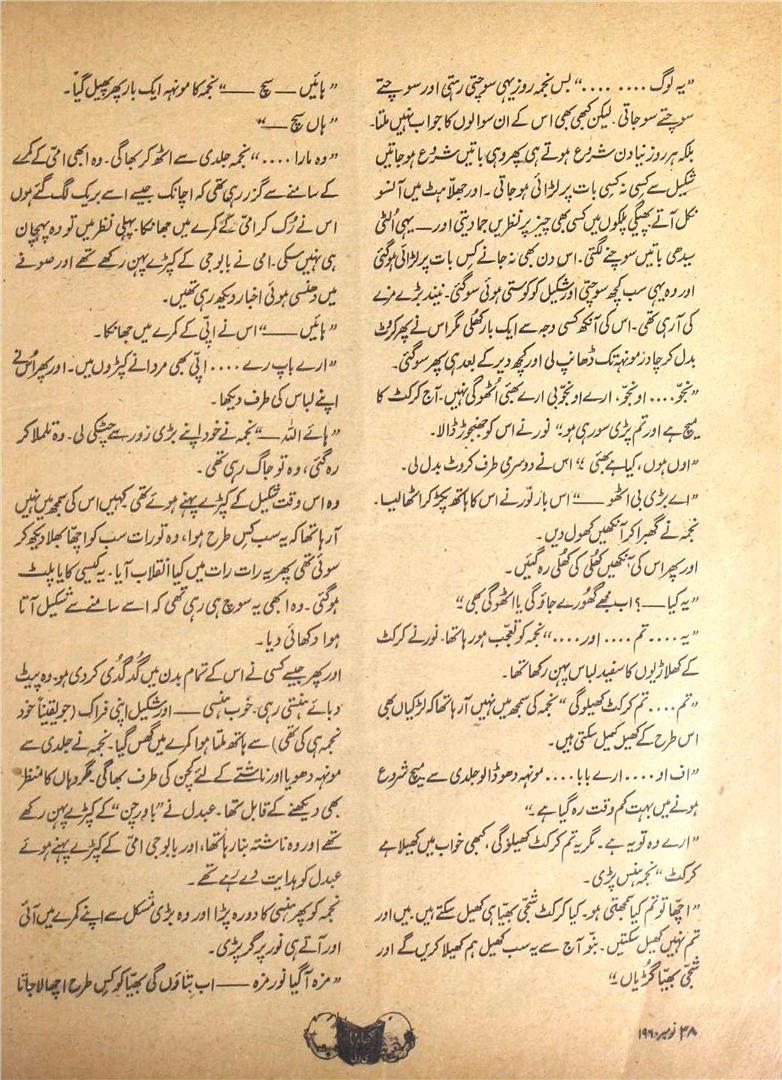 ”یہ لوگ ۔۔۔۔ ۔۔۔۔“ بس نجمہ روز یہی سوچتی رہتی اور سوچتے
سوچتے سو جاتی۔ لیکن کبھی بھی اس کے ان سوالوں کا جواب نہیں ملتا۔
بلکہ ہر روز نیا دن شروع ہوتے ہی پھر وہی باتیں شروع ہو جاتیں
شکیل سے کسی نہ کسی بات پر لڑائی ہو جاتی۔ اور جھلاہٹ میں آنسو
نکل آتے بھیگی پلکوں میں کسی بھی چیز پر نظریں جما دیتی اور — یہی اُلٹی
سیدھی باتیں سوچنے لگتی۔ اس دن بھی نہ جانے کس بات پر لڑائی ہو گئی
اور وہ یہی سب کچھ سوچتی اور شکیل کو کوستی ہوئی سو گئی۔ نیند بڑے مزے
کی آ رہی تھی۔ اس کی آنکھ کسی وجہ سے ایک بار کھلی مگر اس نے پھر کروٹ
بدل کر چادر مونہہ تک ڈھانپ لی اور کچھ دیر کے بعد ہی پھر سو گئی۔
”نجو ۔۔۔۔ او نجو۔ ارے او نجو بی ارے بھئی اُٹھو گی نہیں۔ آج کرکٹ کا
میچ ہے اور تم پڑی سو رہی ہو“۔ نور نے اس کو جھنجوڑ ڈالا۔
”اوں ہوں، کیا ہے بھئی“۔ اس نے دوسری طرف کروٹ بدل لی۔
”اے بڑی بی اٹھو —“ اس بار نور نے اس کا ہاتھ پکڑ کر اٹھا لیا۔
نجمہ نے گھبرا کر آنکھیں کھول دیں۔
اور پھر اس کی آنکھیں کُھلی کی کُھلی رہ گئیں۔
”یہ کیا —؟ اب مجھے گھورے جاؤ گی یا اٹھو گی بھی“۔
”یہ ۔۔۔۔ تم ۔۔۔۔ اور ۔۔۔۔“ نجمہ کو تعجب ہو رہا تھا۔ نور نے کرکٹ
کے کھلاڑیوں کا سفید لباس پہن رکھا تھا۔
”تم ۔۔۔۔ تم کرکٹ کھیلو گی“ نجمہ کی سمجھ میں نہیں آ رہا تھا کہ لڑکیاں بھی
اس طرح کے کھیل کھیل سکتی ہیں۔
”اف او ۔۔۔۔ ارے بابا ۔۔۔۔ مونہہ دھو ڈالو جلدی سے میچ شروع
ہونے میں بہت کم وقت رہ گیا ہے“۔
”ارے وہ تو یہ ہے۔ مگر یہ تم کرکٹ کھیلو گی، کبھی خواب میں کھیلا ہے
کرکٹ“ نجمہ ہنس پڑی۔
”اچھا تو تم کیا سمجھتی ہو۔ کیا کرکٹ شجی بھیا ہی کھیل سکتے ہیں۔ میں اور
تم نہیں کھیل سکتیں۔ بنّو آج سے یہ سب کھیل ہم کھیلا کریں گے اور
شجی بھیا گڑیاں“۔
”ہائیں — سچ —“ نجمہ کا مونہہ ایک بار پھر پھیل گیا۔
”ہاں سچ —“
”وہ مارا ۔۔۔۔“ نجمہ جلدی سے اٹھ کر بھاگی۔ وہ ابھی امّی کے کمرے
کے سامنے سے گزر رہی تھی کہ اچانک جیسے اسے بریک لگ گئے ہوں
اس نے رُک کر امی کے کمرے میں جھانکا۔ پہلی نظر میں تو وہ پہچان
ہی نہیں سکی۔ امی نے بابوجی کے کپڑے پہن رکھے تھے اور صوفے
میں دھنسی ہوئی اخبار دیکھ رہی تھیں۔
”ہائیں —“ اس نے اپّی کے کمرے میں جھانکا۔
”ارے باپ رے ۔۔۔۔ اپّی بھی مردانے کپڑوں میں۔ اور پھر اُس نے
اپنے لباس کی طرف دیکھا۔
”ہائے اللہ —“ نجمہ نے خود اپنے بڑی زور سے چٹکی لی۔ وہ تلملا کر
رہ گئی، وہ تو جاگ رہی تھی۔
وہ اس وقت شکیل کے کپڑے پہنے ہوئے تھی۔ کہیں اس کی سمجھ میں نہیں
آ رہا تھا کہ یہ سب کس طرح ہوا، وہ تو رات سب کو اچھا بھلا دیکھ کر
سوئی تھی پھر یہ رات رات میں کیا انقلاب آیا۔ یہ کیسی کایا پلٹ
ہو گئی۔ وہ ابھی یہ سوچ ہی رہی تھی کہ اسے سامنے سے شکیل آتا
ہوا دکھائی دیا۔
اور پھر جیسے کسی نے اس کے تمام بدن میں گُدگُدی کر دی ہو۔ وہ پیٹ
دبائے ہنستی رہی۔ خوب ہنسی — اور شکیل اپنی فراک (جو یقیناً خود
نجمہ ہی کی تھی) سے ہاتھ ملتا ہوا کمرے میں گھس گیا۔ نجمہ نے جلدی سے
مونہہ دھویا اور ناشتے کے لئے کچن کی طرف بھاگی۔ مگر وہاں کا منظر
بھی دیکھنے کے قابل تھا۔ عبدل نے ”باورچن“ کے کپڑے پہن رکھے
تھے اور وہ ناشتہ بنا رہا تھا، اور بابوجی امّی کے کپڑے پہنے ہوئے
عبدل کو ہدایت دے رہے تھے۔
نجمہ کو پھر ہنسی کا دورہ پڑا اور وہ بڑی مشکل سے اپنے کمرے میں آئی
اور آتے ہی نور پر گر پڑی۔
”مزہ آ گیا نور مزہ — اب بتاؤں گی بھیّا کو کس طرح اچھالا جاتا
۳۸ نومبر ۱۹۶۰ء